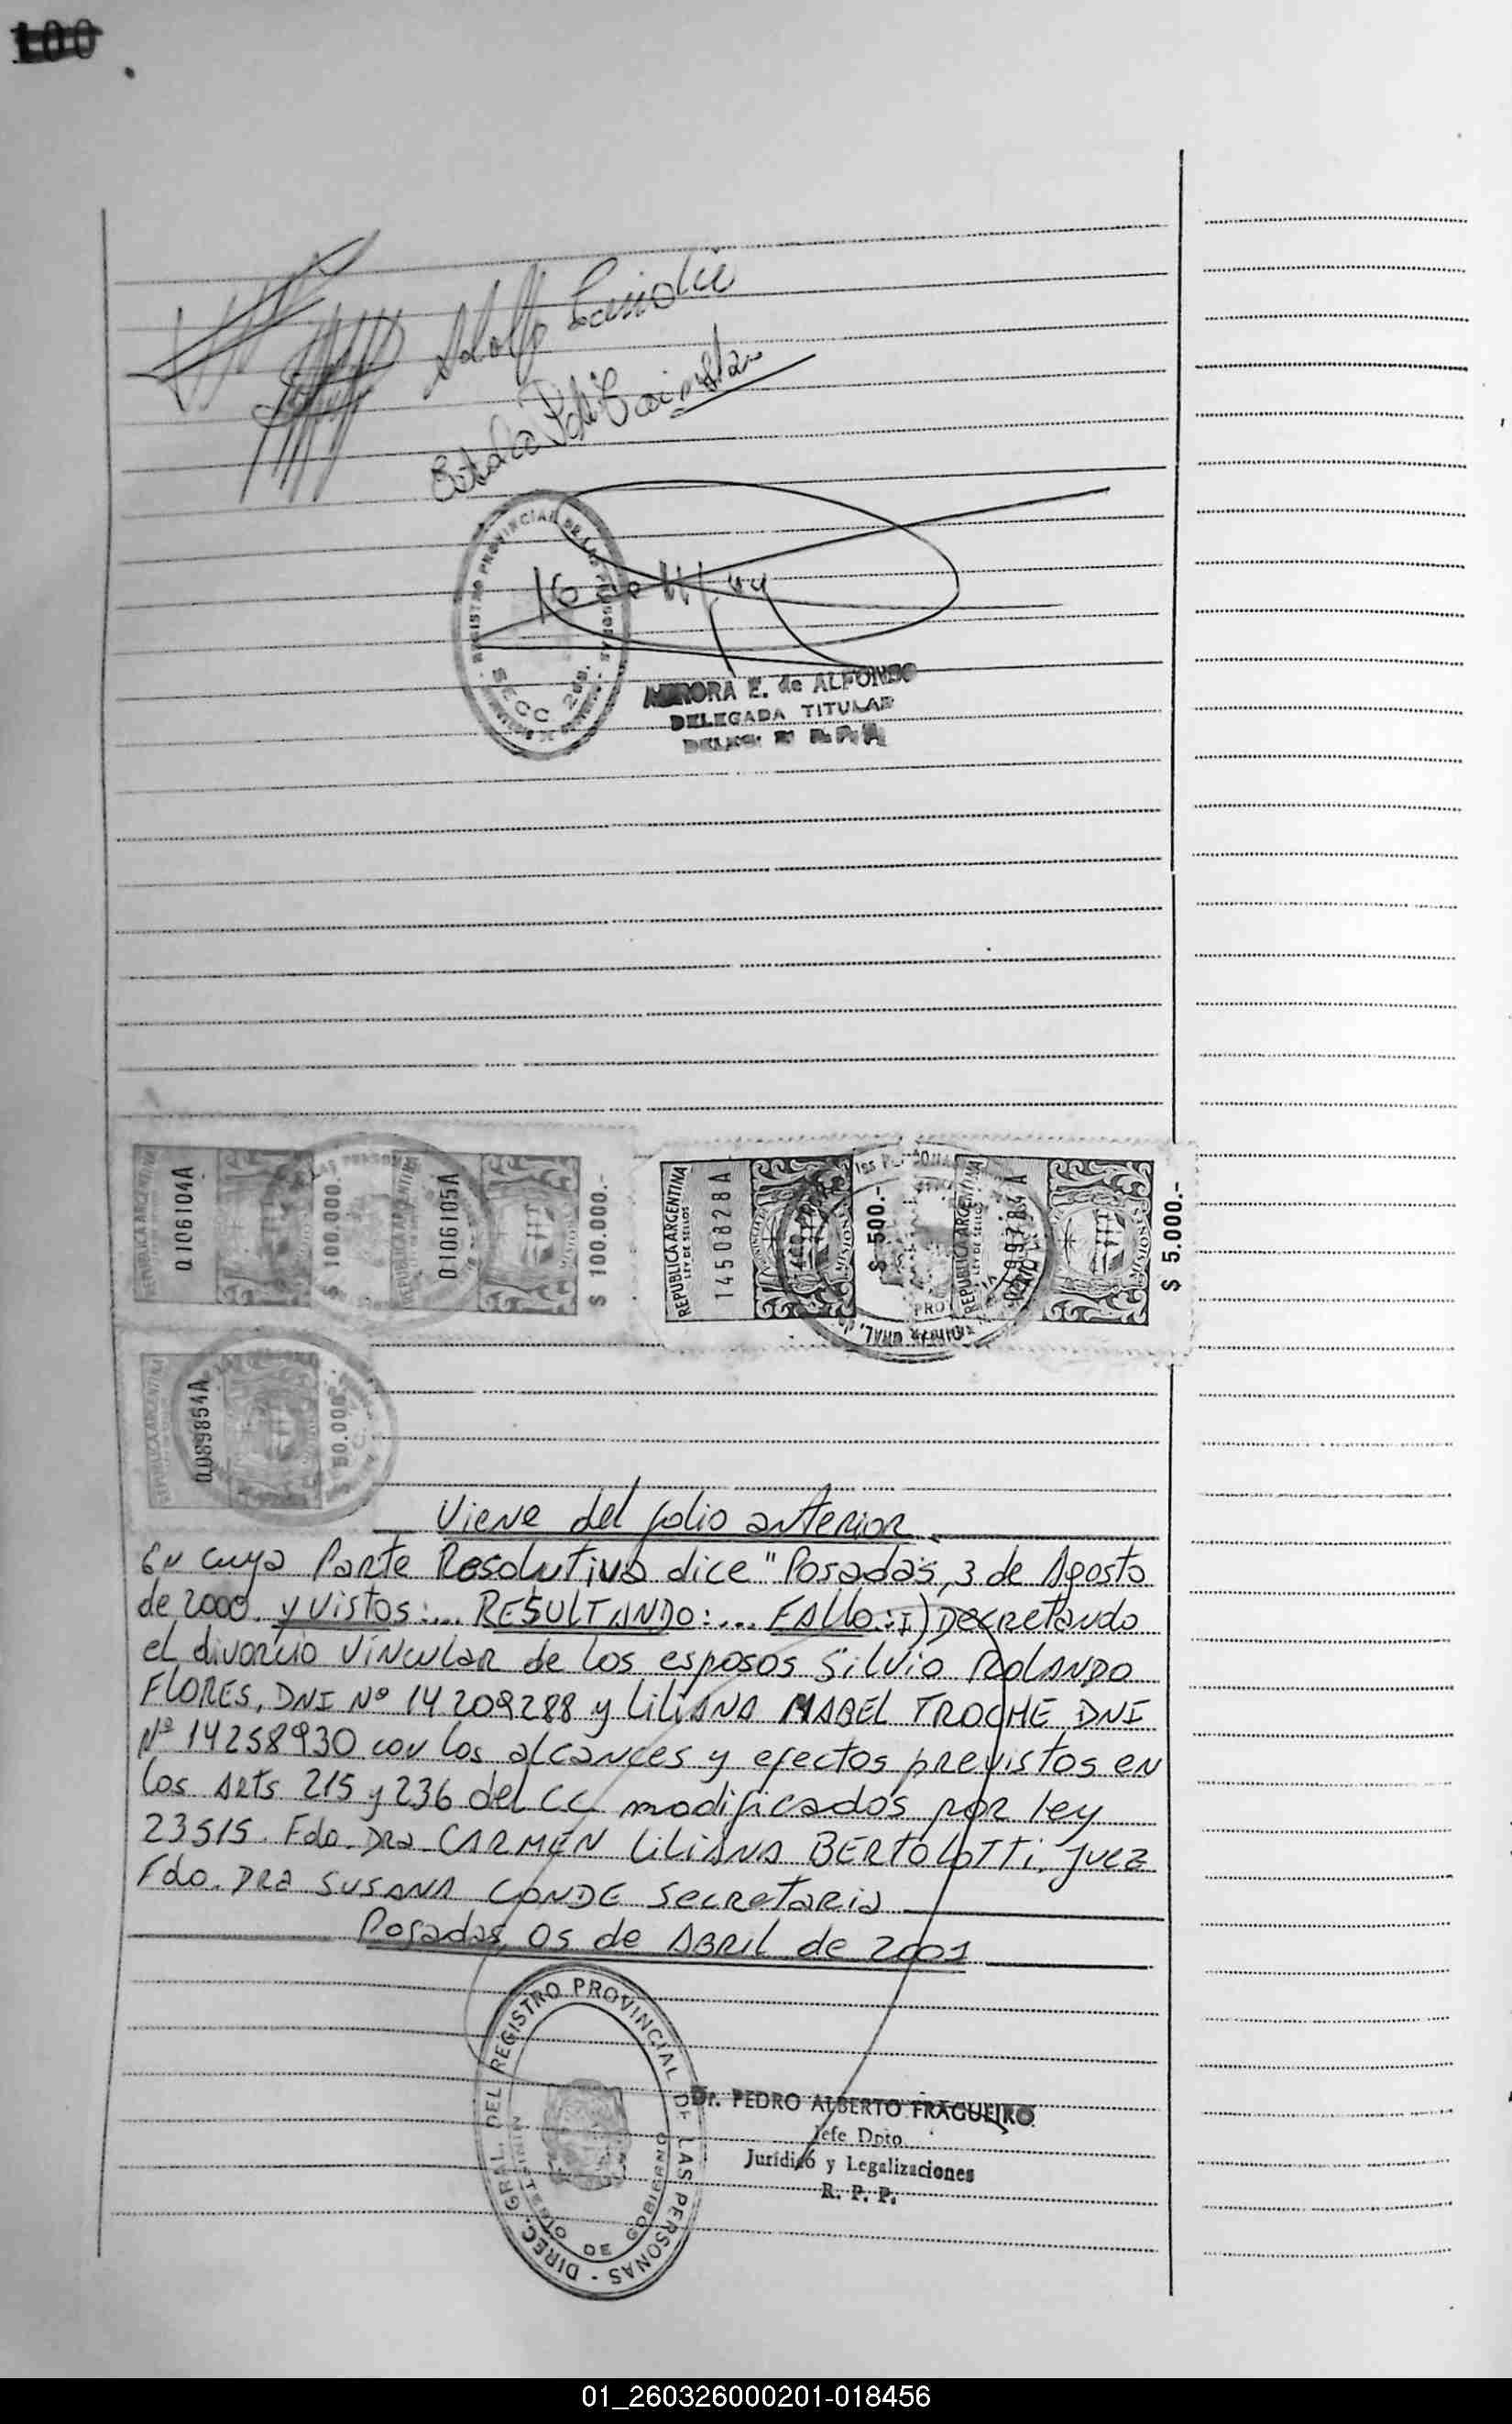 100
Adolfo
REGISTRO PROVINCIAL DE LAS PERSONAS
SECC
AURORA E. de ALFONSO
DELEGADA TITULAR
REPUBLICA ARGENTINA
0106104A
$ 100.000.-
REPUBLICA ARGENTINA
0106105A
$ 100.000.-
REPUBLICA ARGENTINA
LEY DE SELLOS
1450828A
MISIONES
$ 500.-
REPUBLICA ARGENTINA
LEY DE SELLOS
MISIONES
$ 5.000.-
REPUBLICA ARGENTINA
0089854A
50.000.-
Viene del folio anterior
En cuya Parte Resolutiva dice "Posadas, 3 de Agosto
de 2000. y Vistos:... RESULTANDO:... FALLO: I) Decretando
el divorcio Vincular de los esposos Silvio ROLANDO
FLORES, DNI Nº 14209288 y LILIANA MABEL TROCHE DNI
Nº 14258930 con los alcances y efectos previstos en
los Arts 215 y 236 del CC modificados por ley
23515. Fdo. Dra. CARMEN LILIANA BERTOLOTTI. Juez
Fdo. DRa SUSANA CONDE Secretaria
Posadas, 05 de ABRIL de 2001
DIREC. GRAL. DEL REGISTRO PROVINCIAL DE LAS PERSONAS
DE GOBIERNO
Dr. PEDRO ALBERTO FRAGUEIRO
Jefe Dpto.
Jurídico y Legalizaciones
R. P. P.
01_260326000201-018456